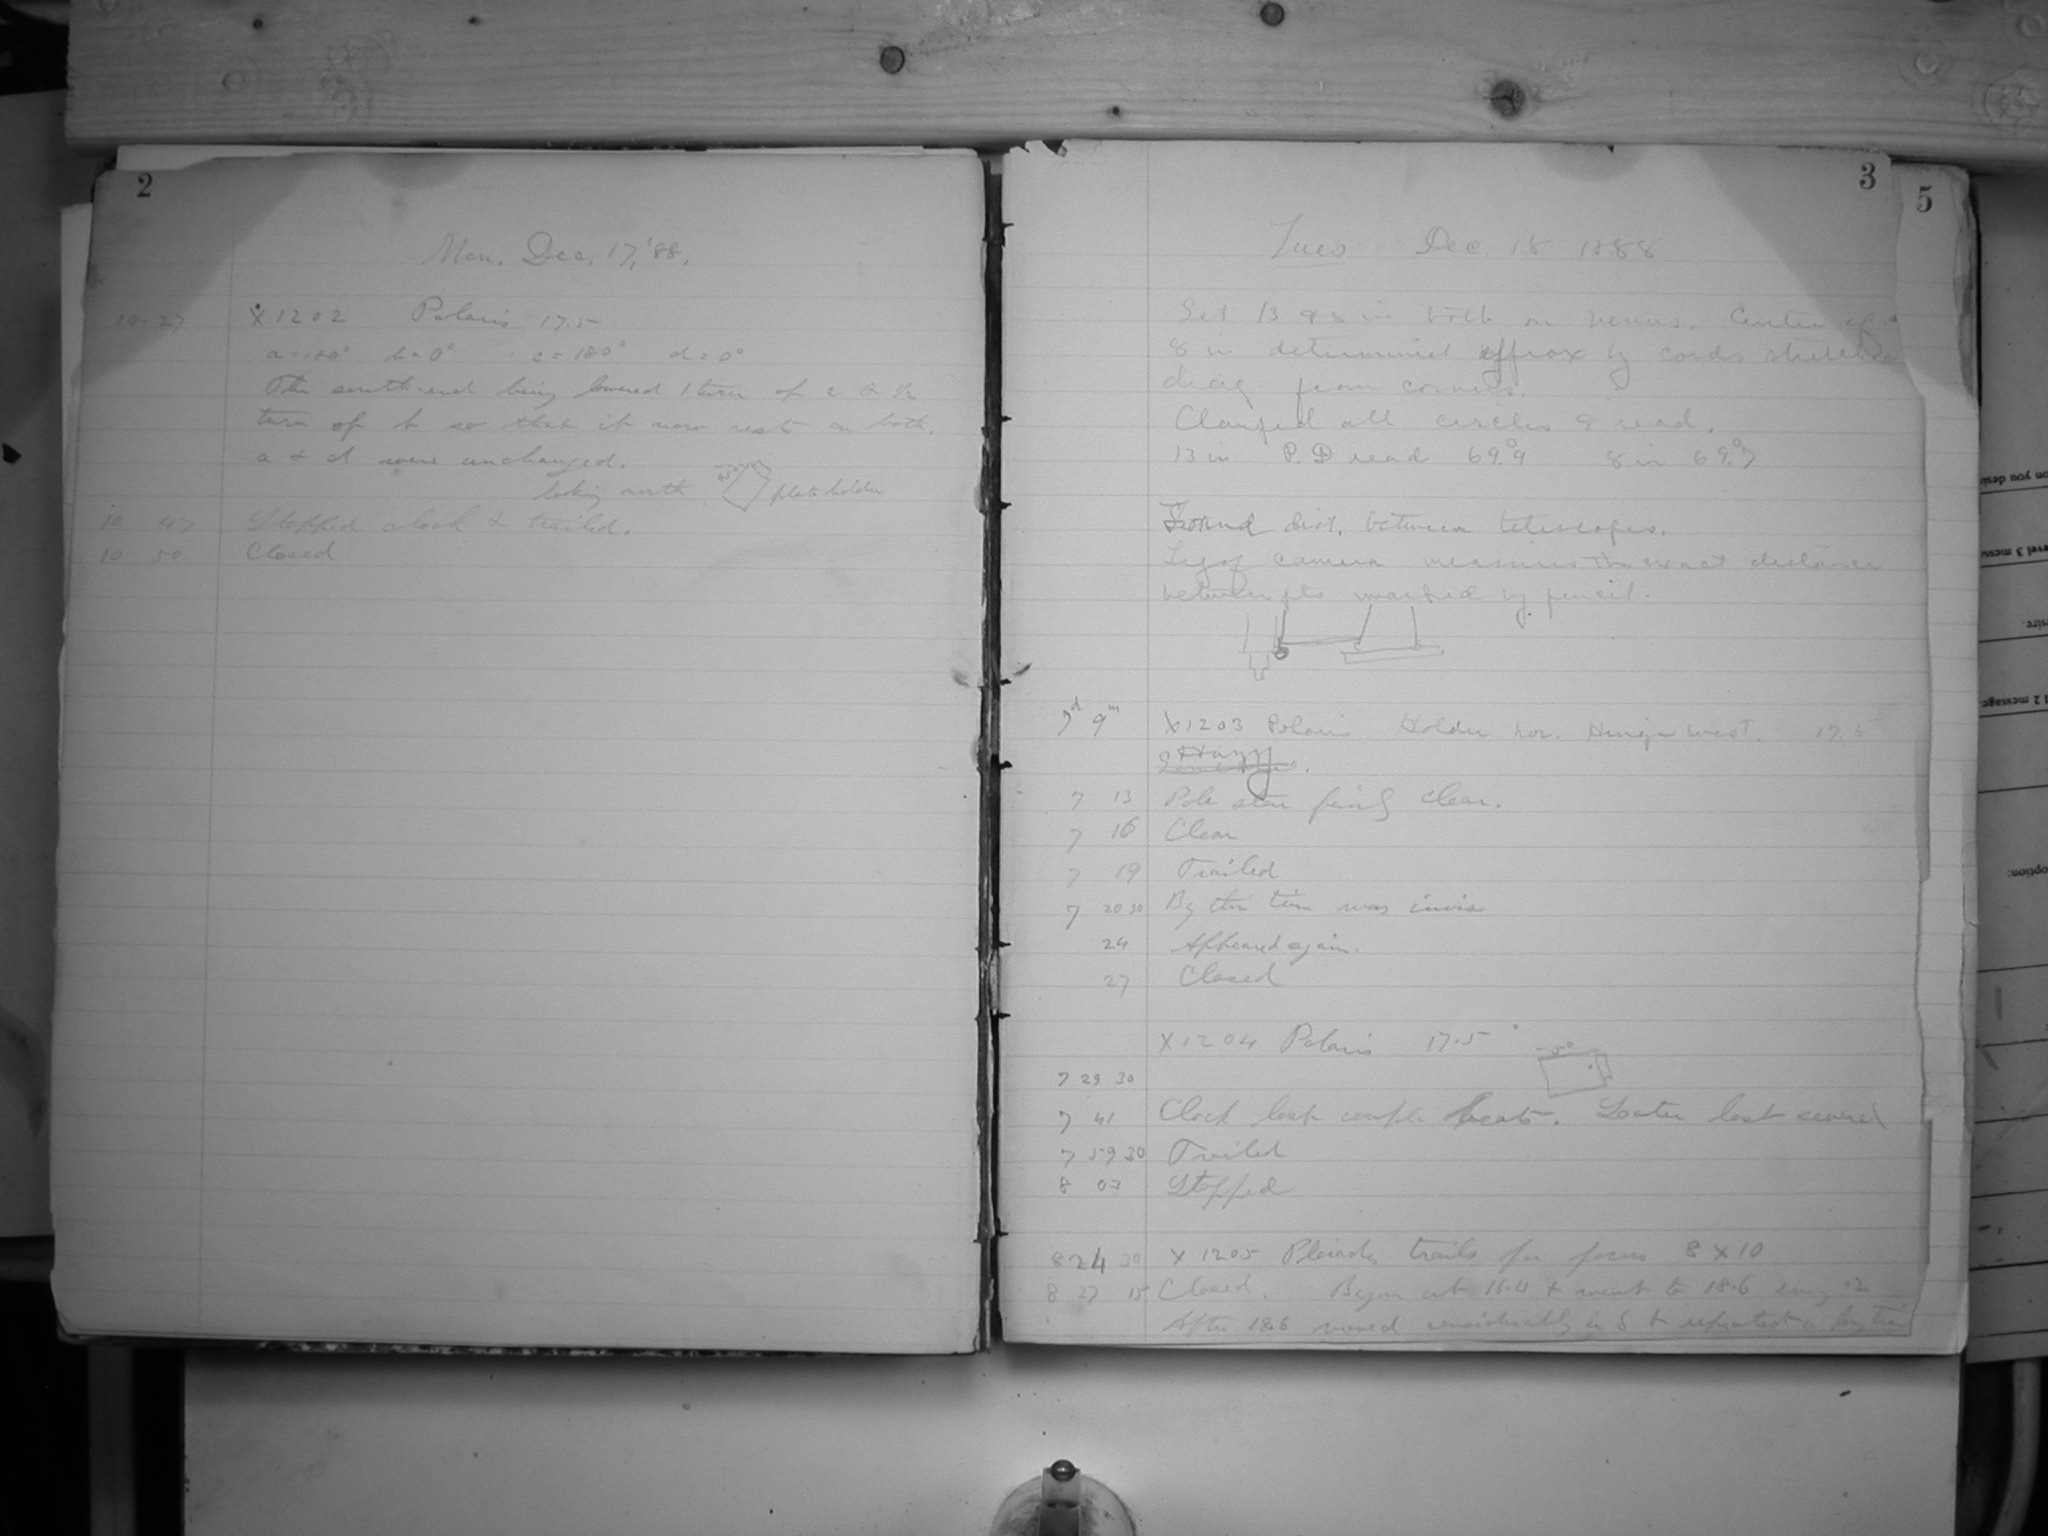 2
Mon. Dec. 17, '88.
10 27 X 1202 Polaris 17.5
a=180° b=0° c=180° d=0°
The south end being lowered 1 turn of c & ½
turn of b so that it now rests on both.
a & d were unchanged.
looking north plate holder
10 47 Stopped clock & trailed.
10 50 Closed
3
5
Tues Dec 18 1888
Set 13 & 8 in both on Venus. Center of
8 in determined approx by cords stretched
diag. from corners.
Clamped all circles & read.
13 in P.D read 69.°9 8 in 69.°7
Found dist. between telescopes.
Leg of camera measures the exact distance
between pts marked by pencil.
7 9m X1203 Polaris Holder hor. Hinge west. 17.5
Hazy
7 13 Pole star fairly clear.
7 16 Clear
7 19 Trailed
7 20 30 By this time was invis
24 Appeared again.
27 Closed
X1204 Polaris 17.5
7 29 30
7 41 Clock lost couple beats. Later lost several
7 59 30 Trailed
8 03 Stopped
8 24 30 X 1205 Pleiades trails for focus 8 X 10
8 27 15 Closed. Began at 16.4 & went to 18.6 every .2
After 18.6 moved considerably in δ & repeated a
on you desire
evel 3 messa
sire.
l 2 message
option: